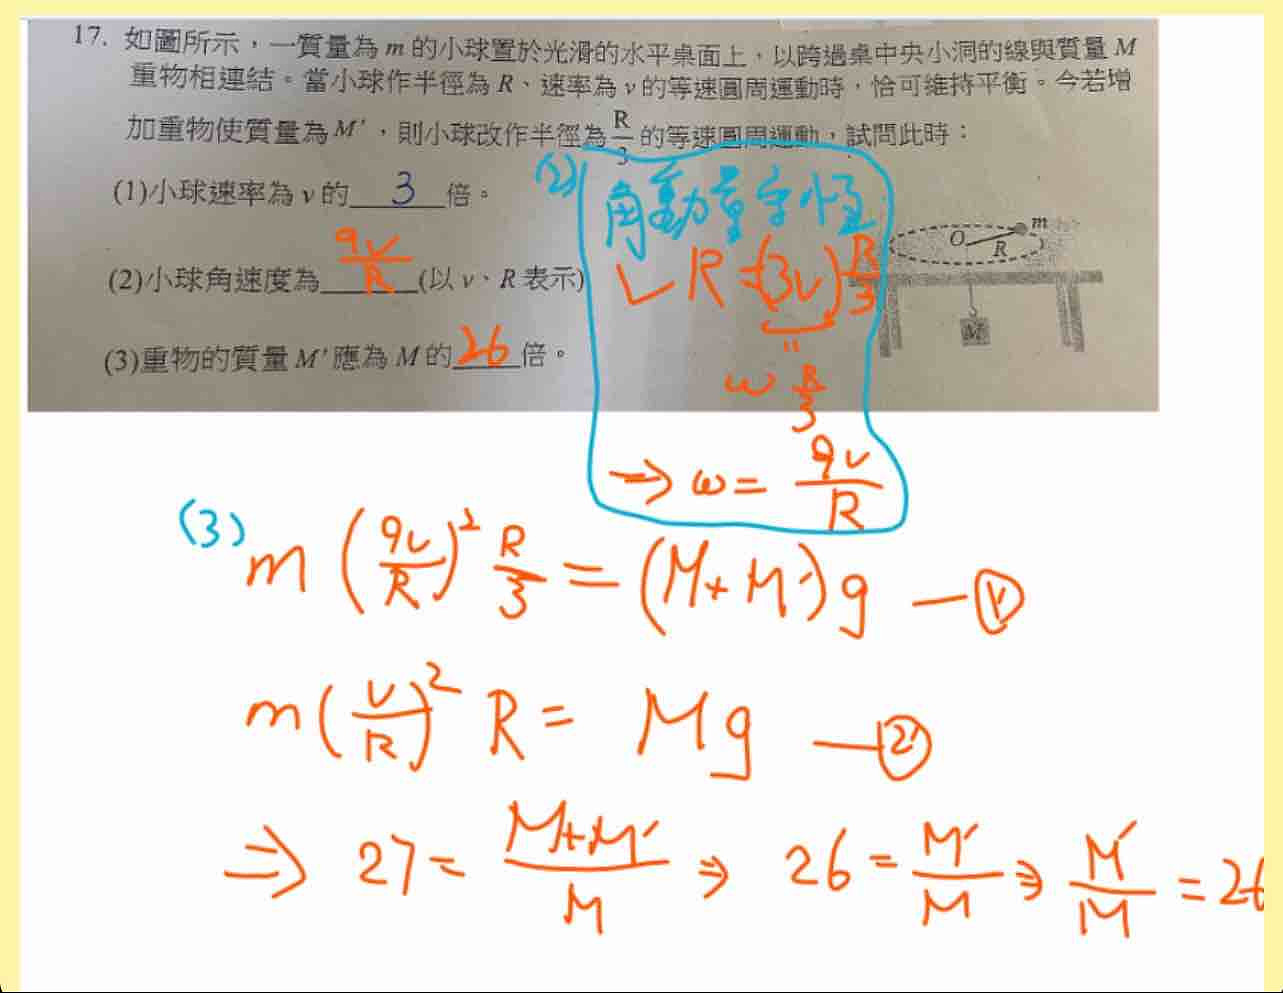 17. 如圖所示，一質量為 m 的小球置於光滑的水平桌面上，以跨過桌中央小洞的線與質量 M
重物相連結。當小球作半徑為 R、速率為 v 的等速圓周運動時，恰可維持平衡。今若增
加重物使質量為 M'，則小球改作半徑為 R/3 的等速圓周運動，試問此時：
(1)小球速率為 v 的 3 倍。
(2)小球角速度為 9v/R (以 v、R 表示)
(3)重物的質量 M' 應為 M 的 26 倍。
O R m
M
(2) 角動量守恆
v R = (3v) R/3
=
ω R/3
⇒ ω = 9v/R
(3) m (9v/R)² R/3 = (M+M')g —①
m (v/R)² R = Mg —②
⇒ 27 = M+M'/M ⇒ 26 = M'/M ⇒ M'/M = 26